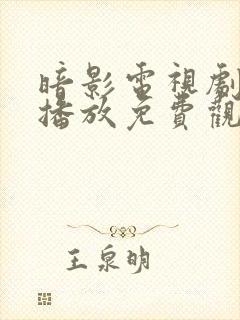 暗影電視劇
播放免費觀
王泉明